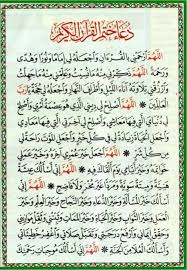 دعاء ختم القرآن الكريم
اللهم ارحمني بالقرءان واجعله لي إماما ونورا وهدى
ورحمة * اللهم ذكرني منه ما نسيت وعلمني منه ما جهلت
وارزقني تلاوته آناء الليل وأطراف النهار واجعله لي حجة يا رب
العالمين * اللهم أصلح لي ديني الذي هو عصمة أمري وأصلح لي
دنياي التي فيها معاشي وأصلح لي آخرتي التي فيها معادي
واجعل الحياة زيادة لي في كل خير واجعل الموت راحة لي
من كل شر * اللهم اجعل خير عمري آخره وخير عملي
خواتمه وخير أيامي يوم ألقاك فيه * اللهم إني أسألك
عيشة هنية وميتة سوية ومردا غير مخز ولا فاضح * اللهم
إني أسألك خير المسألة وخير الدعاء وخير النجاح وخير العلم وخير
العمل وخير الثواب وخير الحياة وخير الممات وثبتني وثقل موازيني
وحقق إيماني وارفع درجتي وتقبل صلاتي واغفر خطيئاتي
وأسألك العلا من الجنة * اللهم إني أسألك موجبات رحمتك